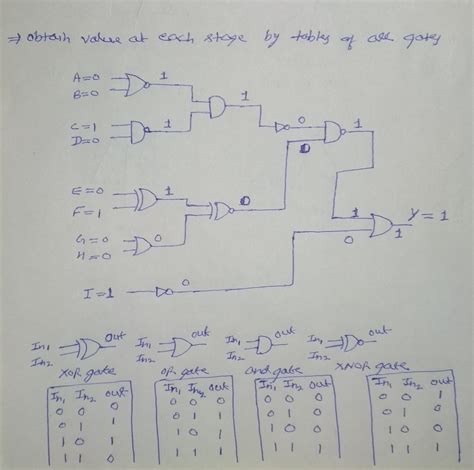 ⇒ obtain value at each stage by tables of all gates
A=0 1
B=0
1
C=1 1 0 1
D=0
0
E=0 1
F=1 0
G=0 0
H=0
1 Y=1
0 1
I=1 0
In1 out In1 out In1 out In1 out
In2 In2 In2 In2
XOR gate OR gate And gate XNOR gate
In1 In2 out In1 In2 out In1 In2 out In1 In2 out
0 0 0 0 0 0 0 0 0 0 0 1
0 1 1 0 1 1 0 1 0 0 1 0
1 0 1 1 0 1 1 0 0 1 0 0
1 1 0 1 1 1 1 1 1 1 1 1